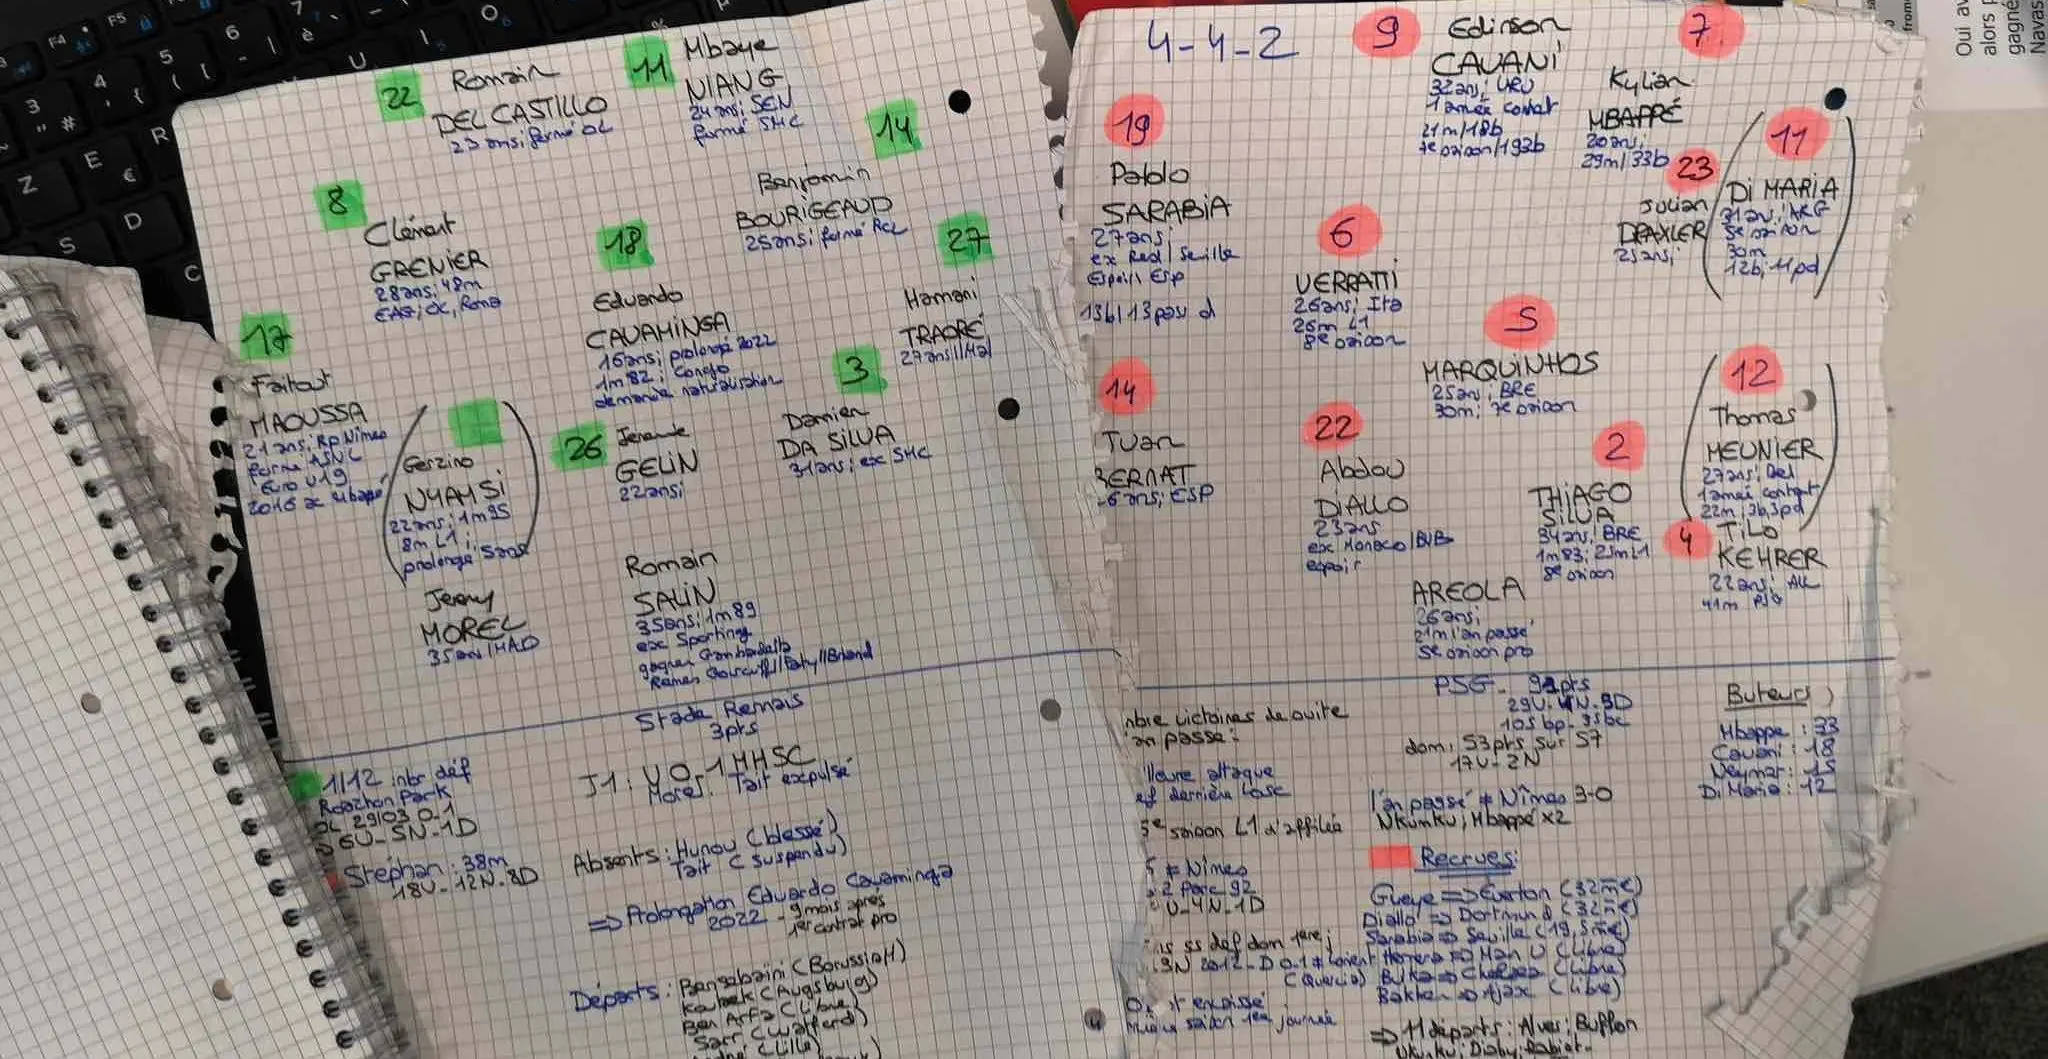 22
Romain
DEL CASTILLO
23 ans; formé OL
11
Mbaye
NIANG
24 ans; SEN
formé SMC
14
Benjamin
BOURIGEAUD
25 ans; formé RCL
8
Clément
GRENIER
28 ans; 48m
EAG; OL, Roma
18
Eduardo
CAVAMINGA
16 ans; prolongé 2022
1m82; Congo
demande naturalisation
27
Hamari
TRAORÉ
27 ans // Mal
17
Faitout
MAOUSSA
21 ans; Rp Nîmes
formé ASNL
Euro U19
2016 ac Mbapé
Gerzino
NYAMSI
22 ans; 1m95
8m L1;
prolongé 5ans
26
Jeremie
GELIN
22 ans;
3
Damien
DA SILVA
31 ans; ex SMC
Jeremy
MOREL
35 an / MAD
Romain
SALIN
35 ans; 1m89
ex Sporting
gagner Gambardella
Rennes Gourcuff // Faty // Briand
Stade Rennais
3pts
1/12 inbr déf
Roazhon Park
OL 29/03 0-1
6V-5N-1D
Stéphan: 38m
18V-12N-8D
J1: V 0-1 MHSC
Morel. Tait expulsé
Absents: Hunou (blessé)
Tait (suspendu)
=> Prolongation Eduardo Cavaminga
2022 - 9 mois après
1er contrat pro
Départs: Bensebaini (Borussia M)
Koubek (Augsburg)
Ben Arfa (Libre)
Sarr (Watford)
(Lille)
4-4-2
9
Edinson
CAVANI
32 ans; URU
1 année contrat
21m/18b
7e saison/193b
7
Kylian
MBAPPÉ
20 ans,
29m/33b
19
Pablo
SARABIA
27 ans;
ex Real / Seville
Espoirs Esp
13b/13pas d
6
VERRATTI
26 ans; Ita
26m L1
8e saison
23
Julian
DRAXLER
25 ans;
11
DI MARIA
31 ans, ARG
5e saison
30m
12b, 11pd
5
MARQUINHOS
25 ans; BRE
30m; 7e saison
14
Juan
BERNAT
6 ans; ESP
22
Abdou
DIALLO
23 ans
ex Monaco / BVB
espoir
2
THIAGO
SILVA
34 ans, BRE
1m83; 25m L1
8e saison
12
Thomas
MEUNIER
27 ans; Bel
1 année contrat
22m, 3b, 5pd
4
TiLO
KEHRER
22 ans; ALL
41m PSG
AREOLA
26 ans;
21m l'an passé
5e saison pro
PSG - 91pts
29V-4N-5D
105bp-35bc
dom, 53pts sur 57
17V-2N
l'an passé # Nîmes 3-0
Nkunku; Mbappé x2
Buteurs
Mbappe: 33
Cavani: 18
Neymar: 15
Di Maria: 12
nbre victoires de suite
an passe:
lleure attaque
ef derrière Losc
5e saison L1 d'affilée
# Nîmes
2 Parc 92
V-4N-1D
ss déf dom 1ere j
2012-D 0-1 # Lorient
(Quercia)
Recrues:
Gueye => Everton (32m€)
Diallo => Dortmund (32m€)
Sarabia => Seville (19,5m€)
Herrera => Man U (Libre)
Bulka => Chelsea (Libre)
Bakker => Ajax (libre)
saison 1ere journée
=> 11 départs: Alves; Buffon
Nkunku; Diaby; Rabiot-
Oui av
alors p
gagné
Navas